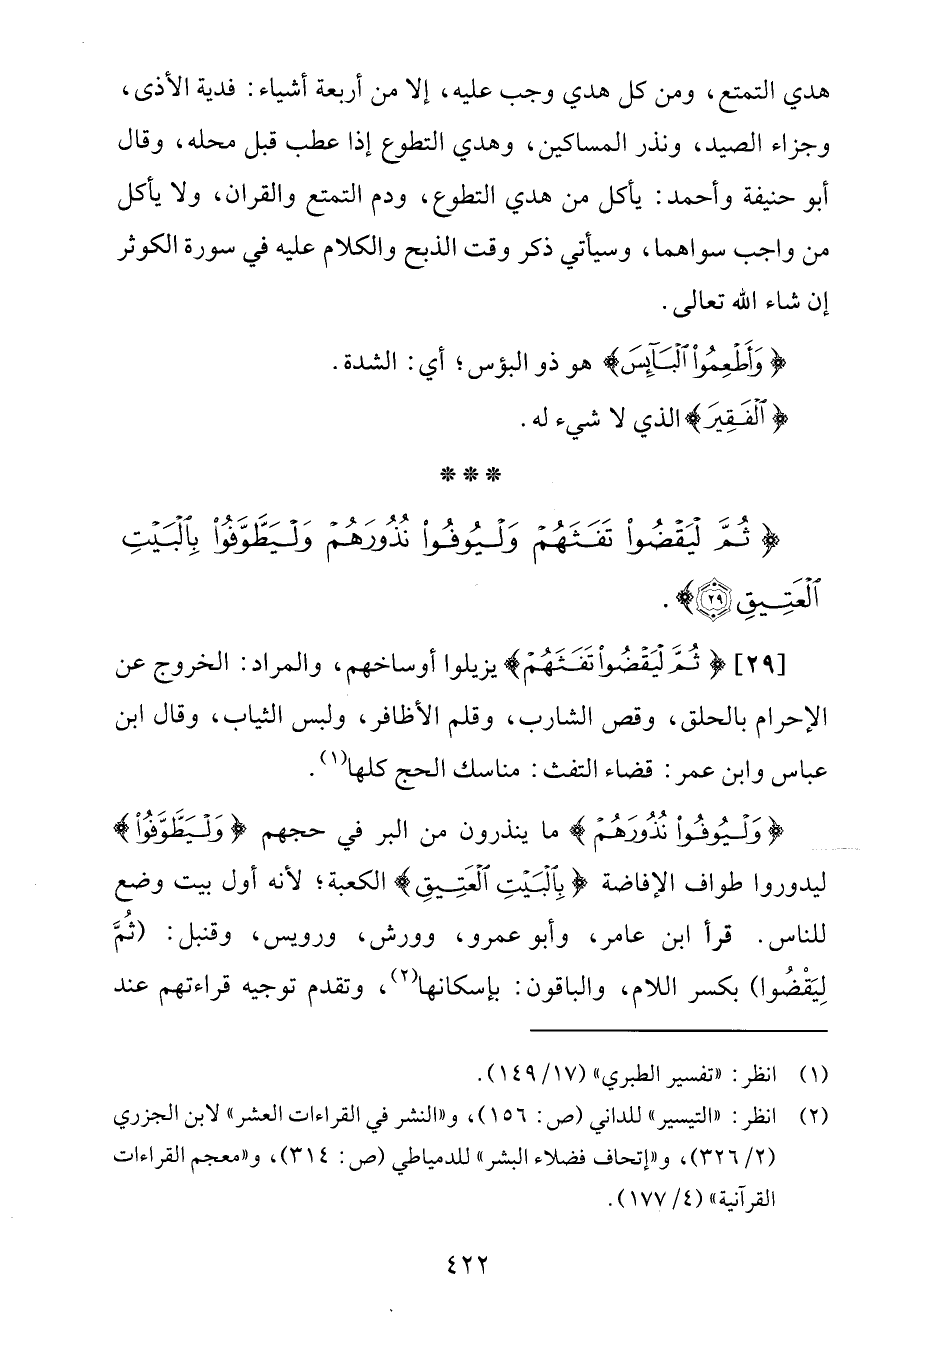 هدي التمتع، ومن كل هدي وجب عليه، إلا من أربعة أشياء: فدية الأذى،
وجزاء الصيد، ونذر المساكين، وهدي التطوع إذا عطب قبل محله، وقال
أبو حنيفة وأحمد: يأكل من هدي التطوع، ودم التمتع والقران، ولا يأكل
من واجب سواهما، وسيأتي ذكر وقت الذبح والكلام عليه في سورة الكوثر
إن شاء الله تعالى.
﴿وَأَطْعِمُوا۟ ٱلْبَآئِسَ﴾ هو ذو البؤس؛ أي: الشدة.
﴿ٱلْفَقِيرَ﴾ الذي لا شيء له.
* * *
﴿ثُمَّ لْيَقْضُوا۟ تَفَثَهُمْ وَلْيُوفُوا۟ نُذُورَهُمْ وَلْيَطَّوَّفُوا۟ بِٱلْبَيْتِ
ٱلْعَتِيقِ ٢٩﴾.
[٢٩] ﴿ثُمَّ لْيَقْضُوا۟ تَفَثَهُمْ﴾ يزيلوا أوساخهم، والمراد: الخروج عن
الإحرام بالحلق، وقص الشارب، وقلم الأظافر، ولبس الثياب، وقال ابن
عباس وابن عمر: قضاء التفث: مناسك الحج كلها(١).
﴿وَلْيُوفُوا۟ نُذُورَهُمْ﴾ ما ينذرون من البر في حجهم ﴿وَلْيَطَّوَّفُوا۟﴾
ليدوروا طواف الإفاضة ﴿بِٱلْبَيْتِ ٱلْعَتِيقِ﴾ الكعبة؛ لأنه أول بيت وضع
للناس. قرأ ابن عامر، وأبو عمرو، وورش، ورويس، وقنبل: (ثُمَّ
لِيَقْضُوا) بكسر اللام، والباقون: بإسكانها(٢)، وتقدم توجيه قراءتهم عند
(١) انظر: «تفسير الطبري» (١٧/ ١٤٩).
(٢) انظر: «التيسير» للداني (ص: ١٥٦)، و«النشر في القراءات العشر» لابن الجزري
(٢/ ٣٢٦)، و«إتحاف فضلاء البشر» للدمياطي (ص: ٣١٤)، و«معجم القراءات
القرآنية» (٤/ ١٧٧).
٤٢٢